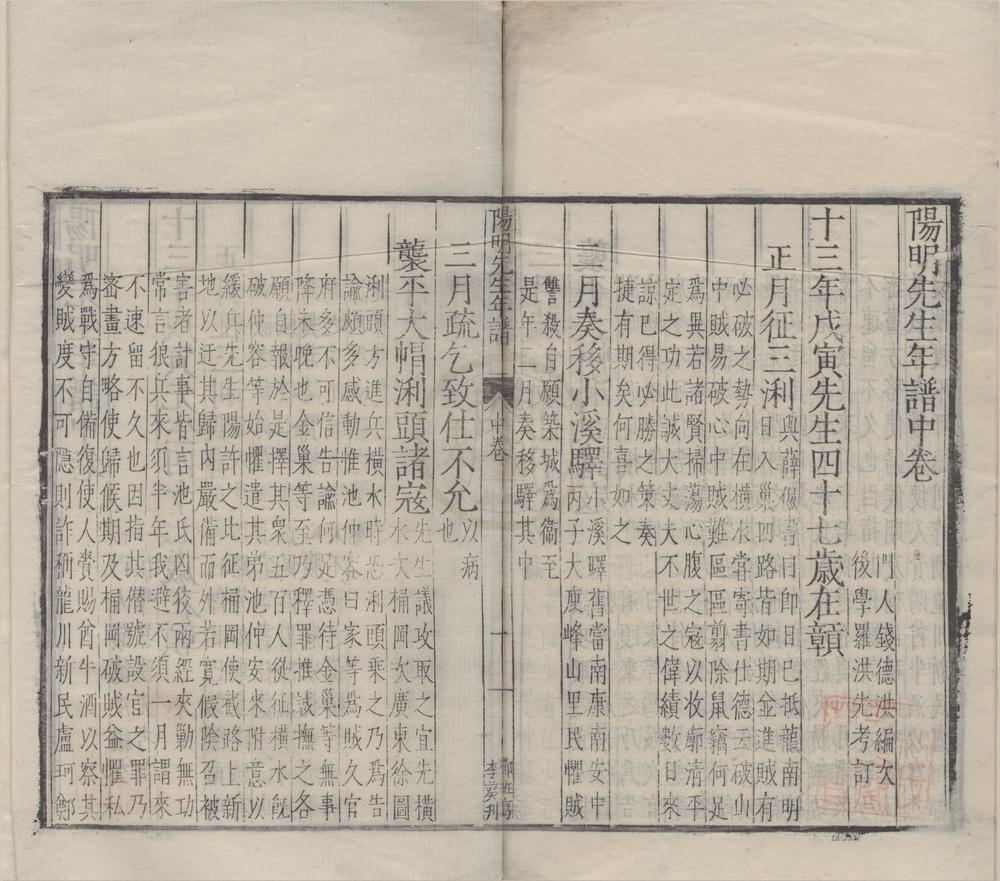 陽明先生年譜中卷
門人錢德洪編次
後學羅洪先考訂
十三年戊寅先生四十七歲在贛
正月征三浰
與薛侃書曰即日已抵龍南明
日入巢四路皆如期並進賊有
必破之勢向在橫水嘗寄書仕德云破山
中賊易破心中賊難區區翦除鼠竊何足
爲異若諸賢掃蕩心腹之寇以收廓清平
定之功此誠大丈夫不世之偉績數日來
諒已得必勝之策奏
捷有期矣何喜如之
二月奏移小溪驛
小溪驛舊當南康南安中
丙子大庾峰山里民懼賊
讐殺自願築城爲衞至
是年二月奏移驛其中
陽明先生年譜
中卷
一
李 刊
三月疏乞致仕不允
以病
也
襲平大帽浰頭諸寇
先生議攻取之宜先橫
水次桶岡次廣東徐圖
浰頭方進兵橫水時恐浰頭乘之乃爲告
諭頗多感動惟池仲容曰我等爲賊久官
府多不可信告諭何足憑待金巢等無事
降未晚也金巢等至乃釋罪推誠撫之各
願自報於是擇其衆五百人從征橫水旣
破仲容等始懼遣其弟池仲安來附意以
緩兵先生陽許之比征桶岡使截路上新
地以迂其歸內嚴備而外若寬假陰召被
害者計事皆言池氏凶狡兩經夾勦無功
常言狼兵來須半年我避不須一月謂來
不速留不久也因指其僭號設官之罪乃
密畫方略使歸候期及桶岡破賊益懼私
爲戰守自備復使人賚賜酋牛酒以察其
變賊度不可隱則詐稱龍川新民盧珂鄭